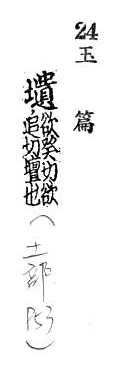 24 玉篇
壝 欲癸切欲
追切壇也
(土部)